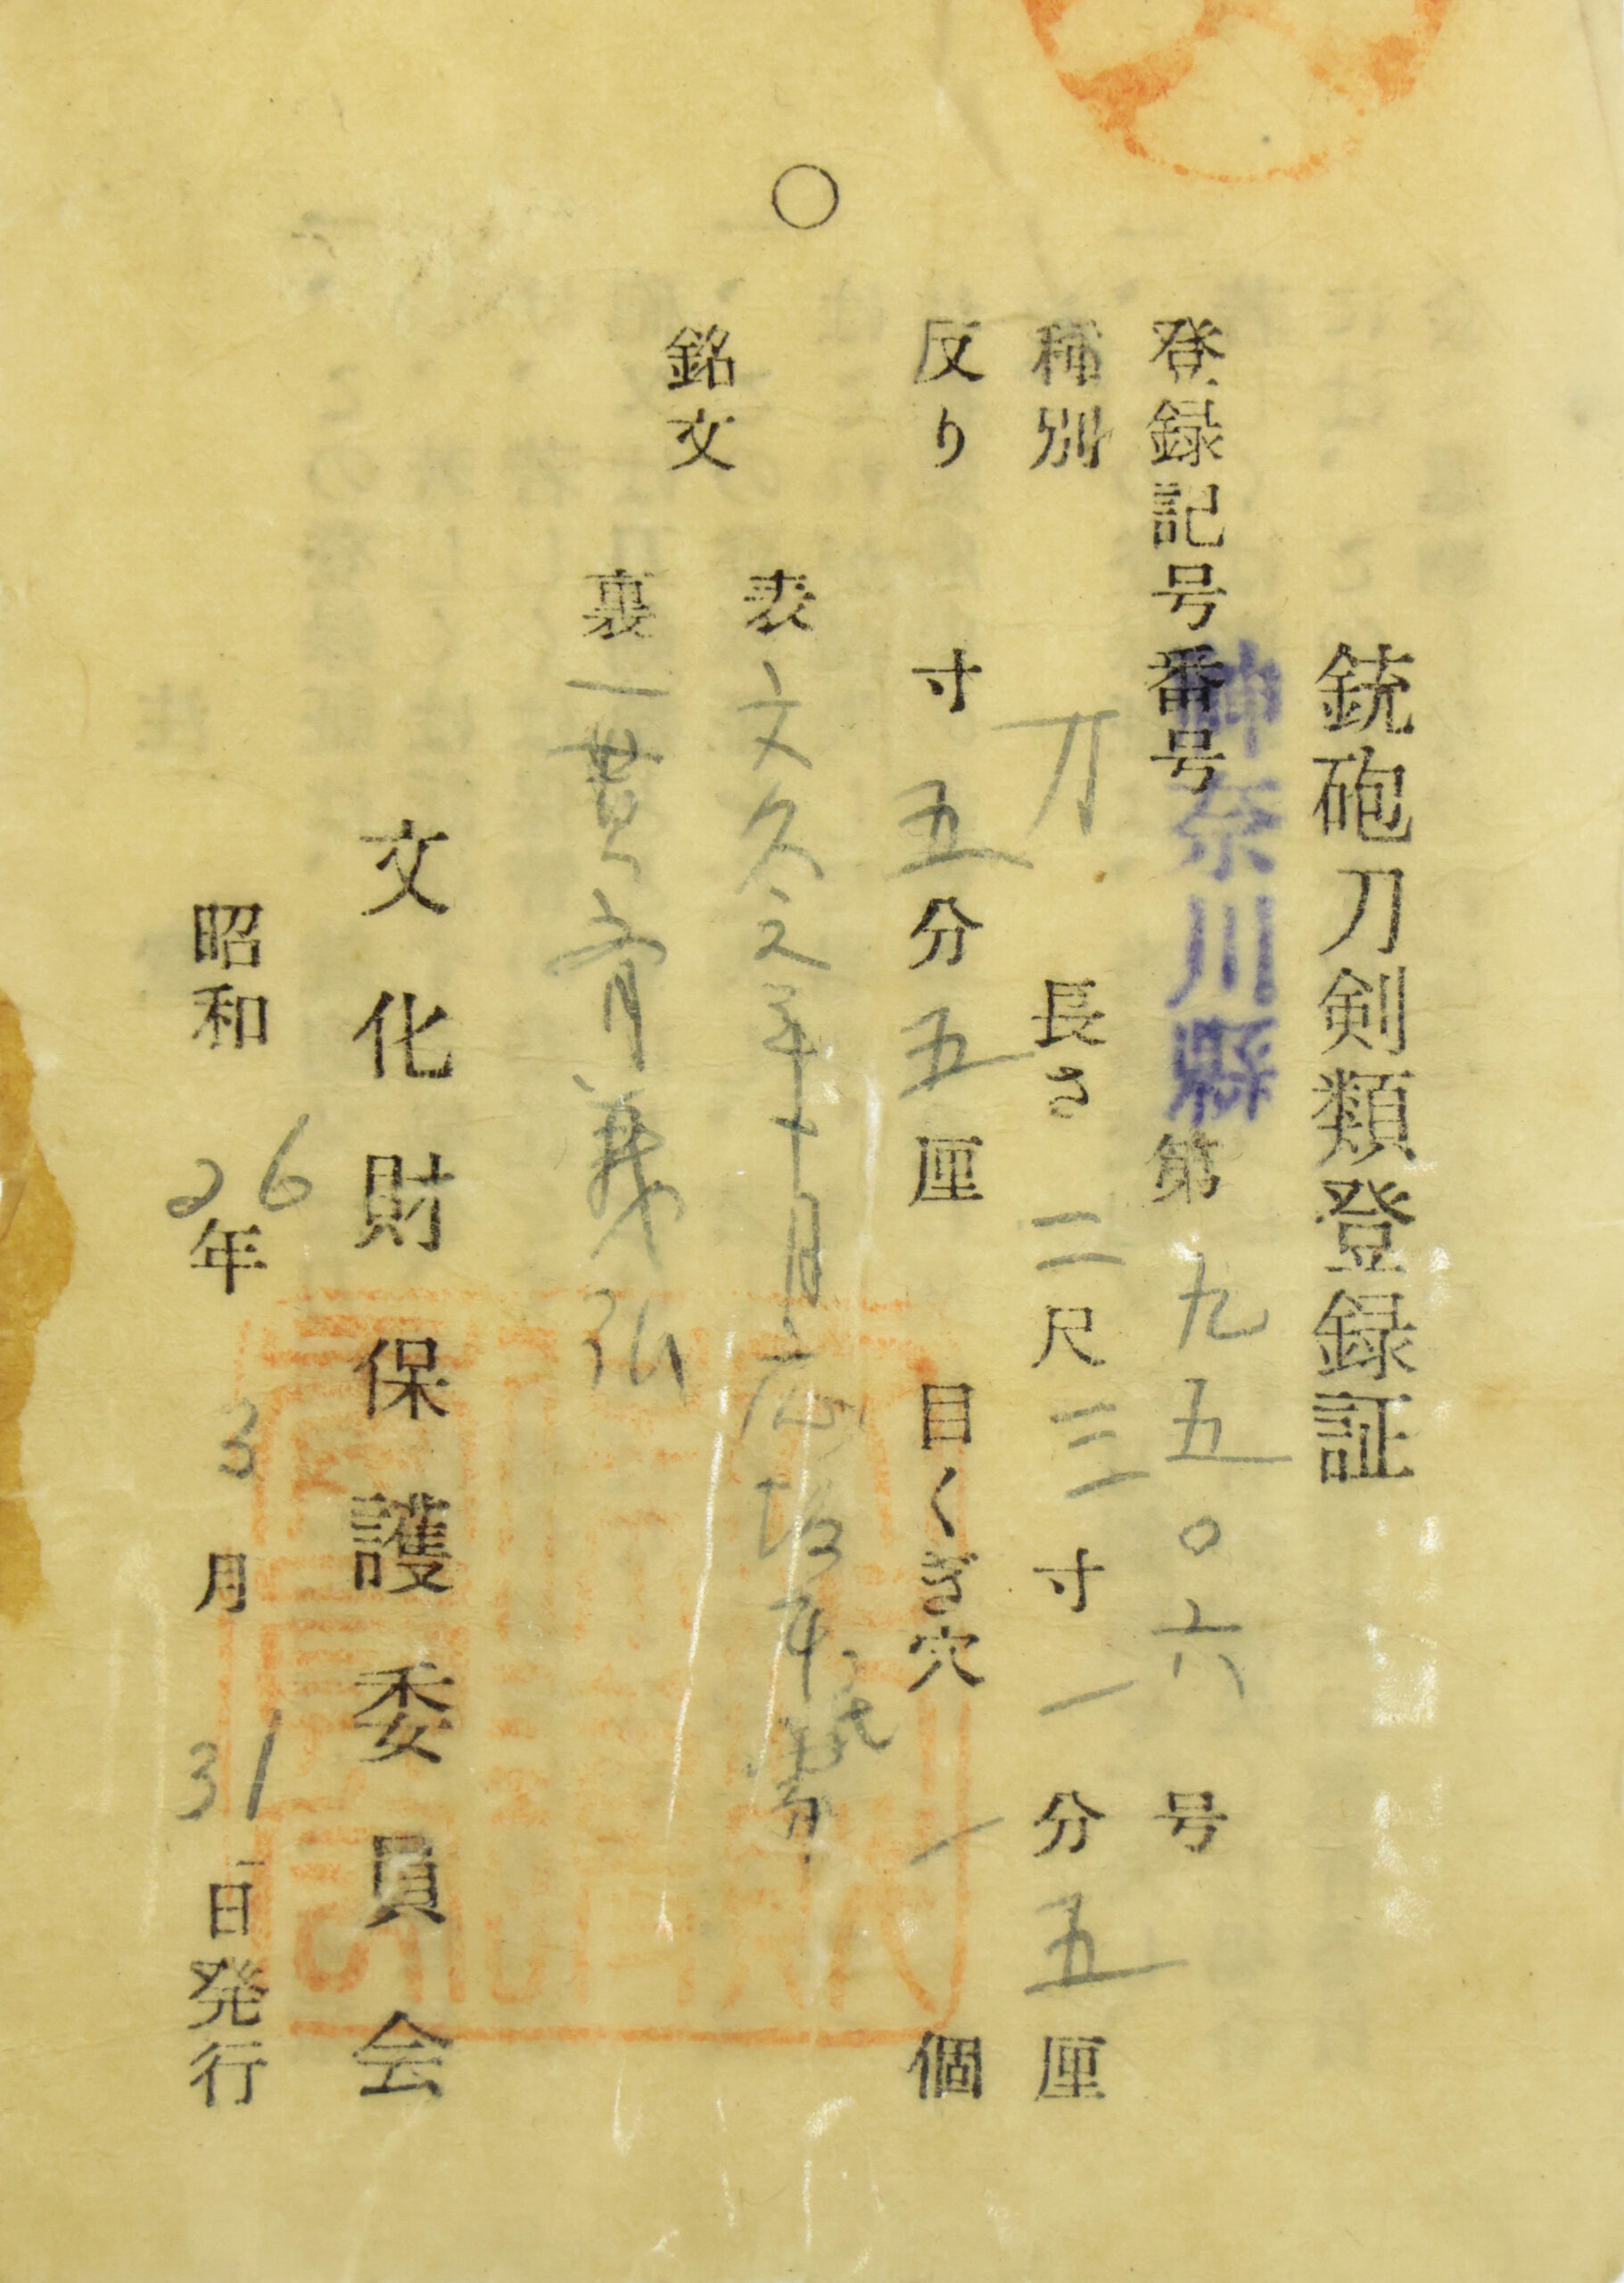 銃砲刀剣類登録証
登録記号番号 神奈川縣 第 九五〇六 号
種別 刀 長さ 二尺三寸一分五厘
反り 寸五分五厘 目くぎ穴 一個
銘文
表 文久元年十月応
裏 一貫斎義弘
文化財保護委員会
昭和26年3月31日発行